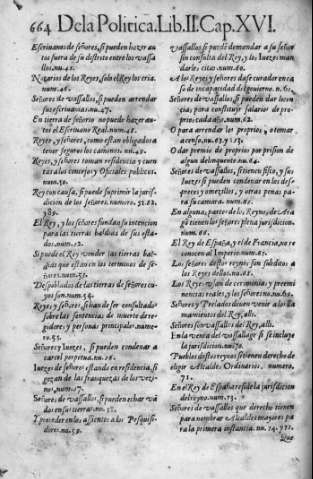 664 De la Politica. Lib. II. Cap. XVI.
Escriuanos de señores, si pueden hazer au
tos fuera de su distrito entre los vassa
llos. nu. 42.
Notarios de los Reyes, solo el Rey los cria.
num. 46.
Señores de vassallos, si pueden arrendar
sus escriuanias. nu. 47.
En tierra de señorio no puede hazer au-
tos el Escriuano Real. num. 48.
Reyes, y señores, como estan obligados a
tener seguros los caminos. nu. 49.
Reyes, y señores toman residencia y cuen
tas a los concejos y Oficiales publicos.
num. 50.
Rey con causa, si puede suprimir la jurisdi-
cion de los señores. numero. 51. 82.
y 89.
El Rey, y los señores fundan su intencion
para las tierras baldias de sus esta-
dos. num. 52.
Si puede el Rey vender las tierras bal-
dias que estan en los terminos de se-
ñores. num. 53.
Despoblados de las tierras de señores cu-
yos son. num. 54.
Reyes y señores, si han de ser consultados
sobre las sentencias de muerte de re-
gidores y personas principales. nume-
ro. 55.
Señores y Iuezes, si pueden condenar a
carcel perpetua. nu. 56.
Iuezes de señores estando en residencia, si
gozan de las franquezas de los vezi-
nos. num. 57.
Señores de vassallos, si pueden echar vã
dos en sus tierras. nu. 58.
Y proceder en los assientos a los Pesquisi-
dores. nu. 59.
Vassallos, si puede demandar a su señor
sin consulta del Rey, y los Iuezes man
darle citar. num. 60.
A los Reyes y señores da se curador en ca
so de incapacidad del gouierno. n. 61.
Señores de vassallos, si pueden dar licen-
cias para constituyr salarios de pro-
prios cada año. num. 62.
O para arrendar los proprios, o tomar
a censo. nu. 62. y 63.
O dar premio de proprios por prision de
algun delinquente. nu. 64.
Señores de vassallos, si tienen fisco, y sus
Iuezes si pueden condenar en los des-
preces y omezillos, y otras penas pa-
ra su camara. num. 66.
En algunas partes de los Reynos de Ara
gõ tienen los señores plena juridicion.
num. 66.
El Rey de España, y el de Francia, no re
conocen al Imperio. num. 68.
Los señores destos reynos son subditos a
los Reyes dellos. nu. 68.
Los Reyes vsan de ceremonias y preemi
nencias reales, y los señores no. nu. 69.
Señores y Prelados deuen venir a los lla
mamientos del Rey, alli.
Señores son vassallos del Rey, alli.
En la venta del vassallage si se incluye
la jurisdicion. nu. 70.
Pueblos destos reynos si tienen derecho de
eligir Alcaldes Ordinarios. numero.
71.
En el Rey de España reside la jurisdicion
del reyno. num. 73.
Señores de vassallos que derecho tienen
para nombrar Alcaldes mayores pa-
ra la primera instancia. nu. 74. y 75.
Que